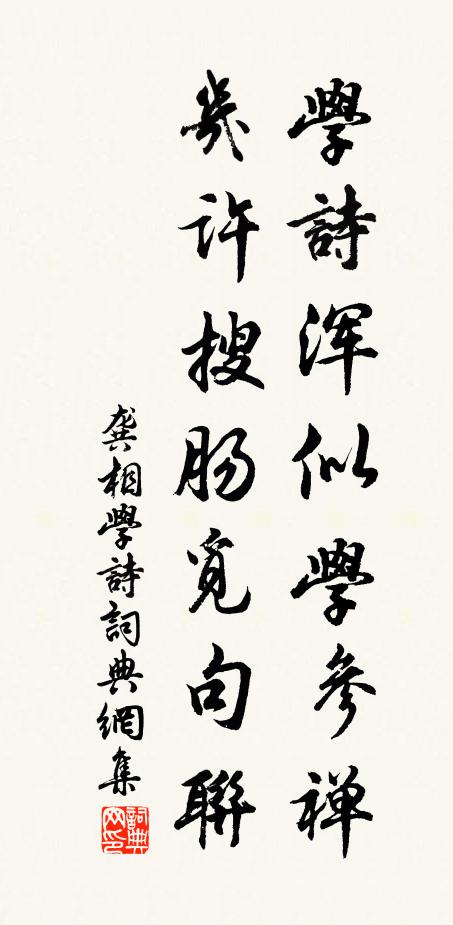 學詩渾似學參禪
幾許搜腸覓句聯
龔相學詩詞典網集
詞典网印